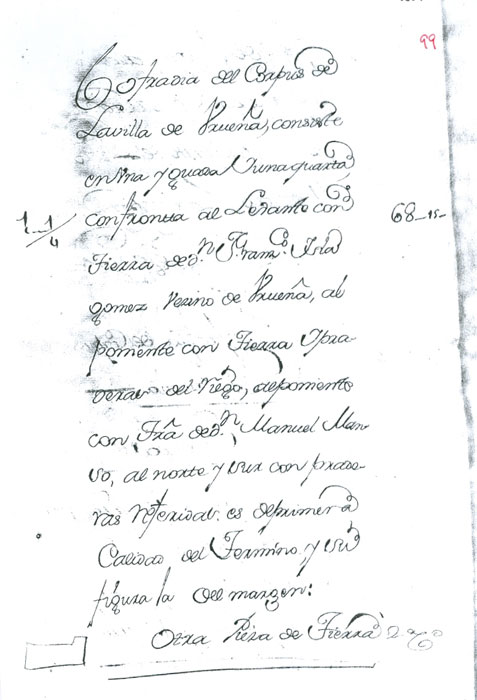 99
Cofradia del Capus de
Lavilla de Prueña, consiste
en Una y quarta
1 1/4 confronta al Levante con 68-15-
Tierra de D.n Fran.co Isla
gomez Vezino de Prueña, al
pomiente con Tierra Y pra-
deras del Riego, al pomiente
con Trã de D.n Manuel Man-
so, al norte y sur con prade-
ras Referidas. es de primera
Calidad del Termino, y su
figura la del margen:
Otra Pieza de Tierra